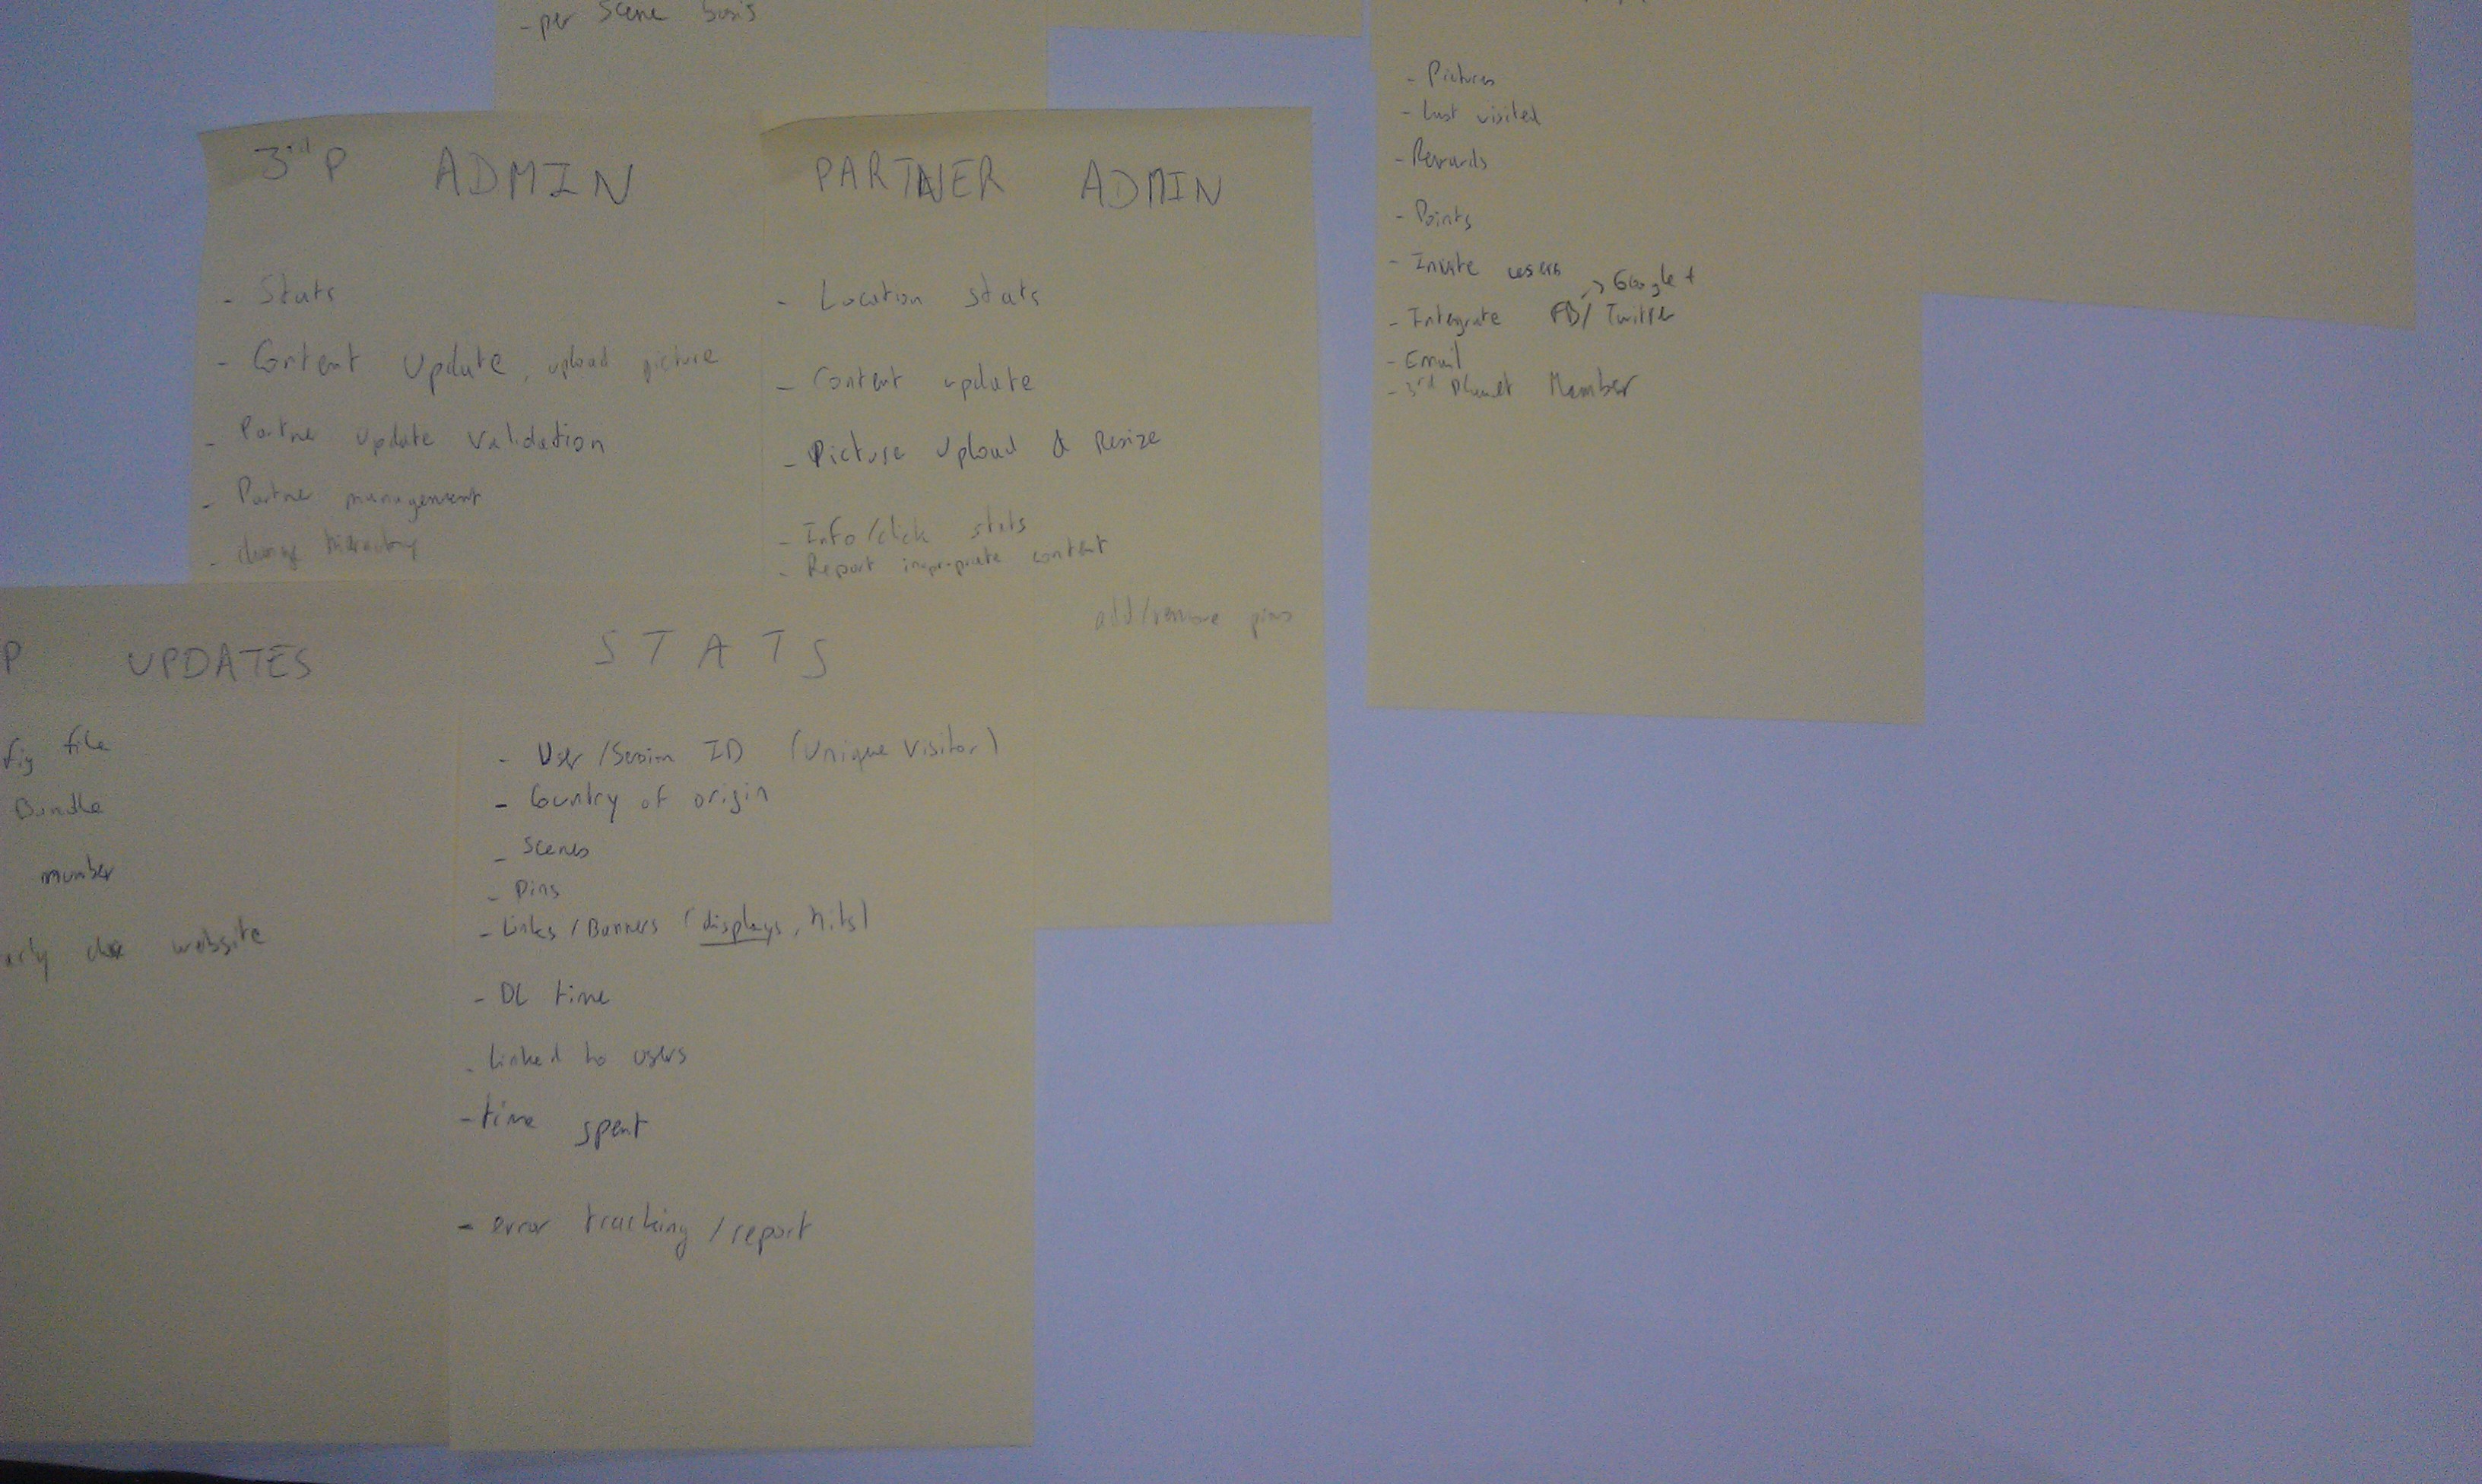 - per scene basis
3rd P ADMIN
- Stats
- Content Update, upload picture
- Partner update validation
- Partner management
- change hierarchy
PARTNER ADMIN
- Location stats
- Content update
- Picture upload & Resize
- Info/click stats
- Report inapropriate content
add/remove pins
- Pictures
- Last visited
- Rewards
- Points
- Invite users
-> Google +
- Integrate FB/ Twitter
- Email
- 3rd Planet Member
P UPDATES
fig file
Bundle
number
arly website
STATS
- User /Session ID (Unique Visitor)
- Country of origin
- Scenes
- Pins
- Links / Banners (displays, hits)
- DL time
- Linked to users
- time spent
- error tracking / report